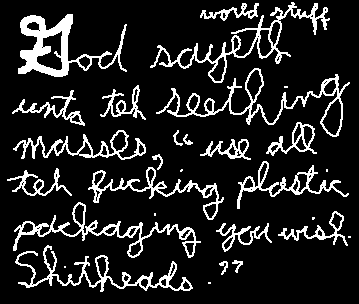 world stuff
God sayeth
unto teh seething
masses, "use all
teh fucking plastic
packaging you wish.
Shitheads."